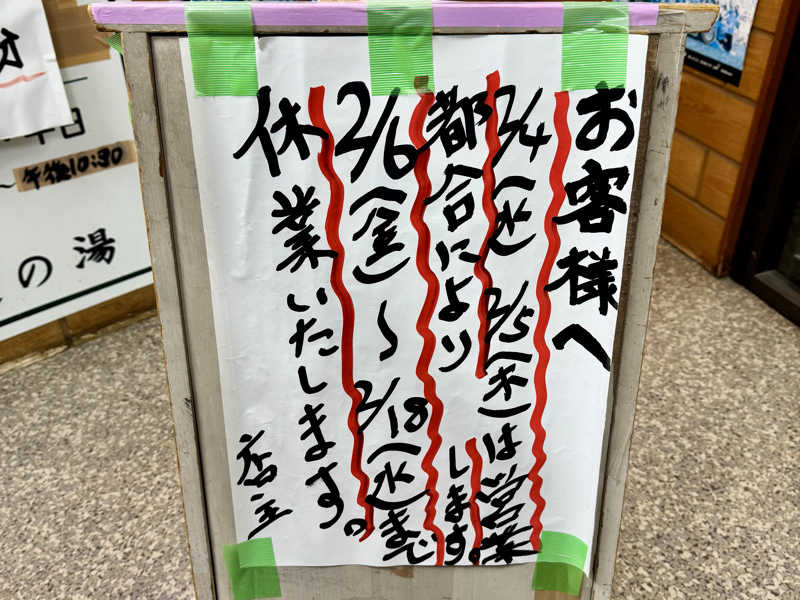 お客様へ
2/4(水) 2/5(木)は営業
します。
都合により
2/6(金)~2/18(水)まで
休業いたします。
店主
午後10:30
の湯